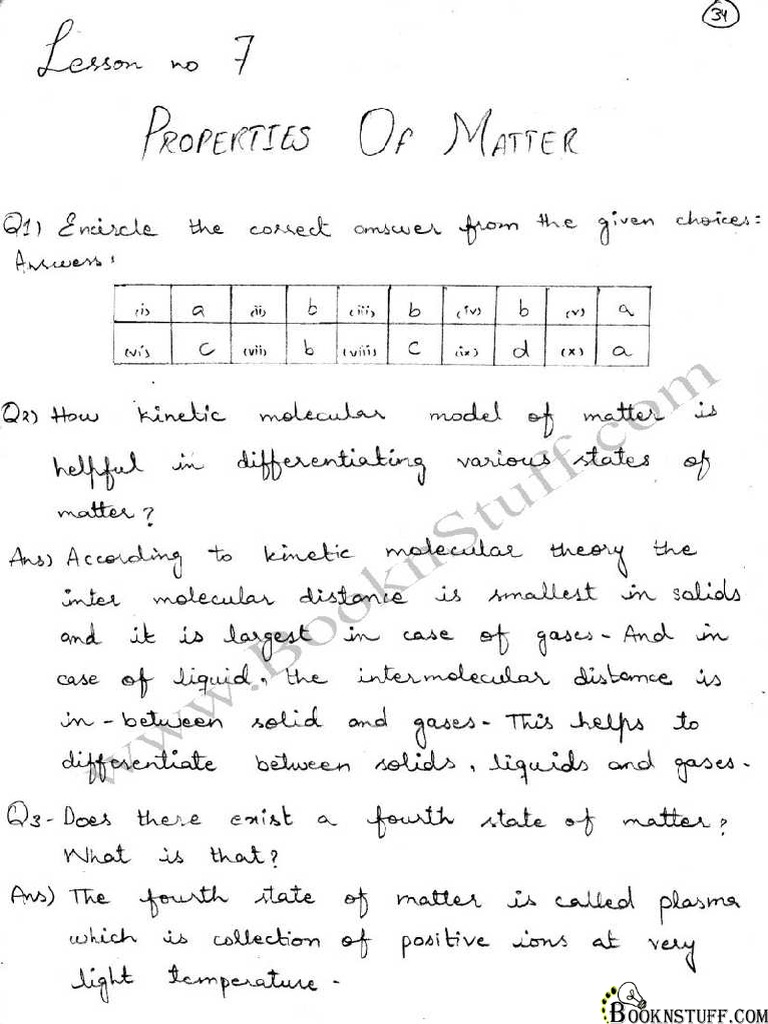 34
Lesson no 7
PROPERTIES OF MATTER
Q1) Encircle the correct answer from the given choices:
Answers:
(i) a (ii) b (iii) b (iv) b (v) a
(vi) c (vii) b (viii) c (ix) d (x) a
Q2) How kinetic molecular model of matter is
helpful in differentiating various states of
matter?
Ans) According to kinetic molecular theory the
inter molecular distance is smallest in solids
and it is largest in case of gases - And in
case of liquid, the intermolecular distance is
in-between solid and gases - This helps to
differentiate between solids, liquids and gases -
Q3 - Does there exist a fourth state of matter?
What is that?
Ans) The fourth state of matter is called plasma
which is collection of positive ions at very
light temperature -
www.BooknStuff.com
BOOKNSTUFF.COM